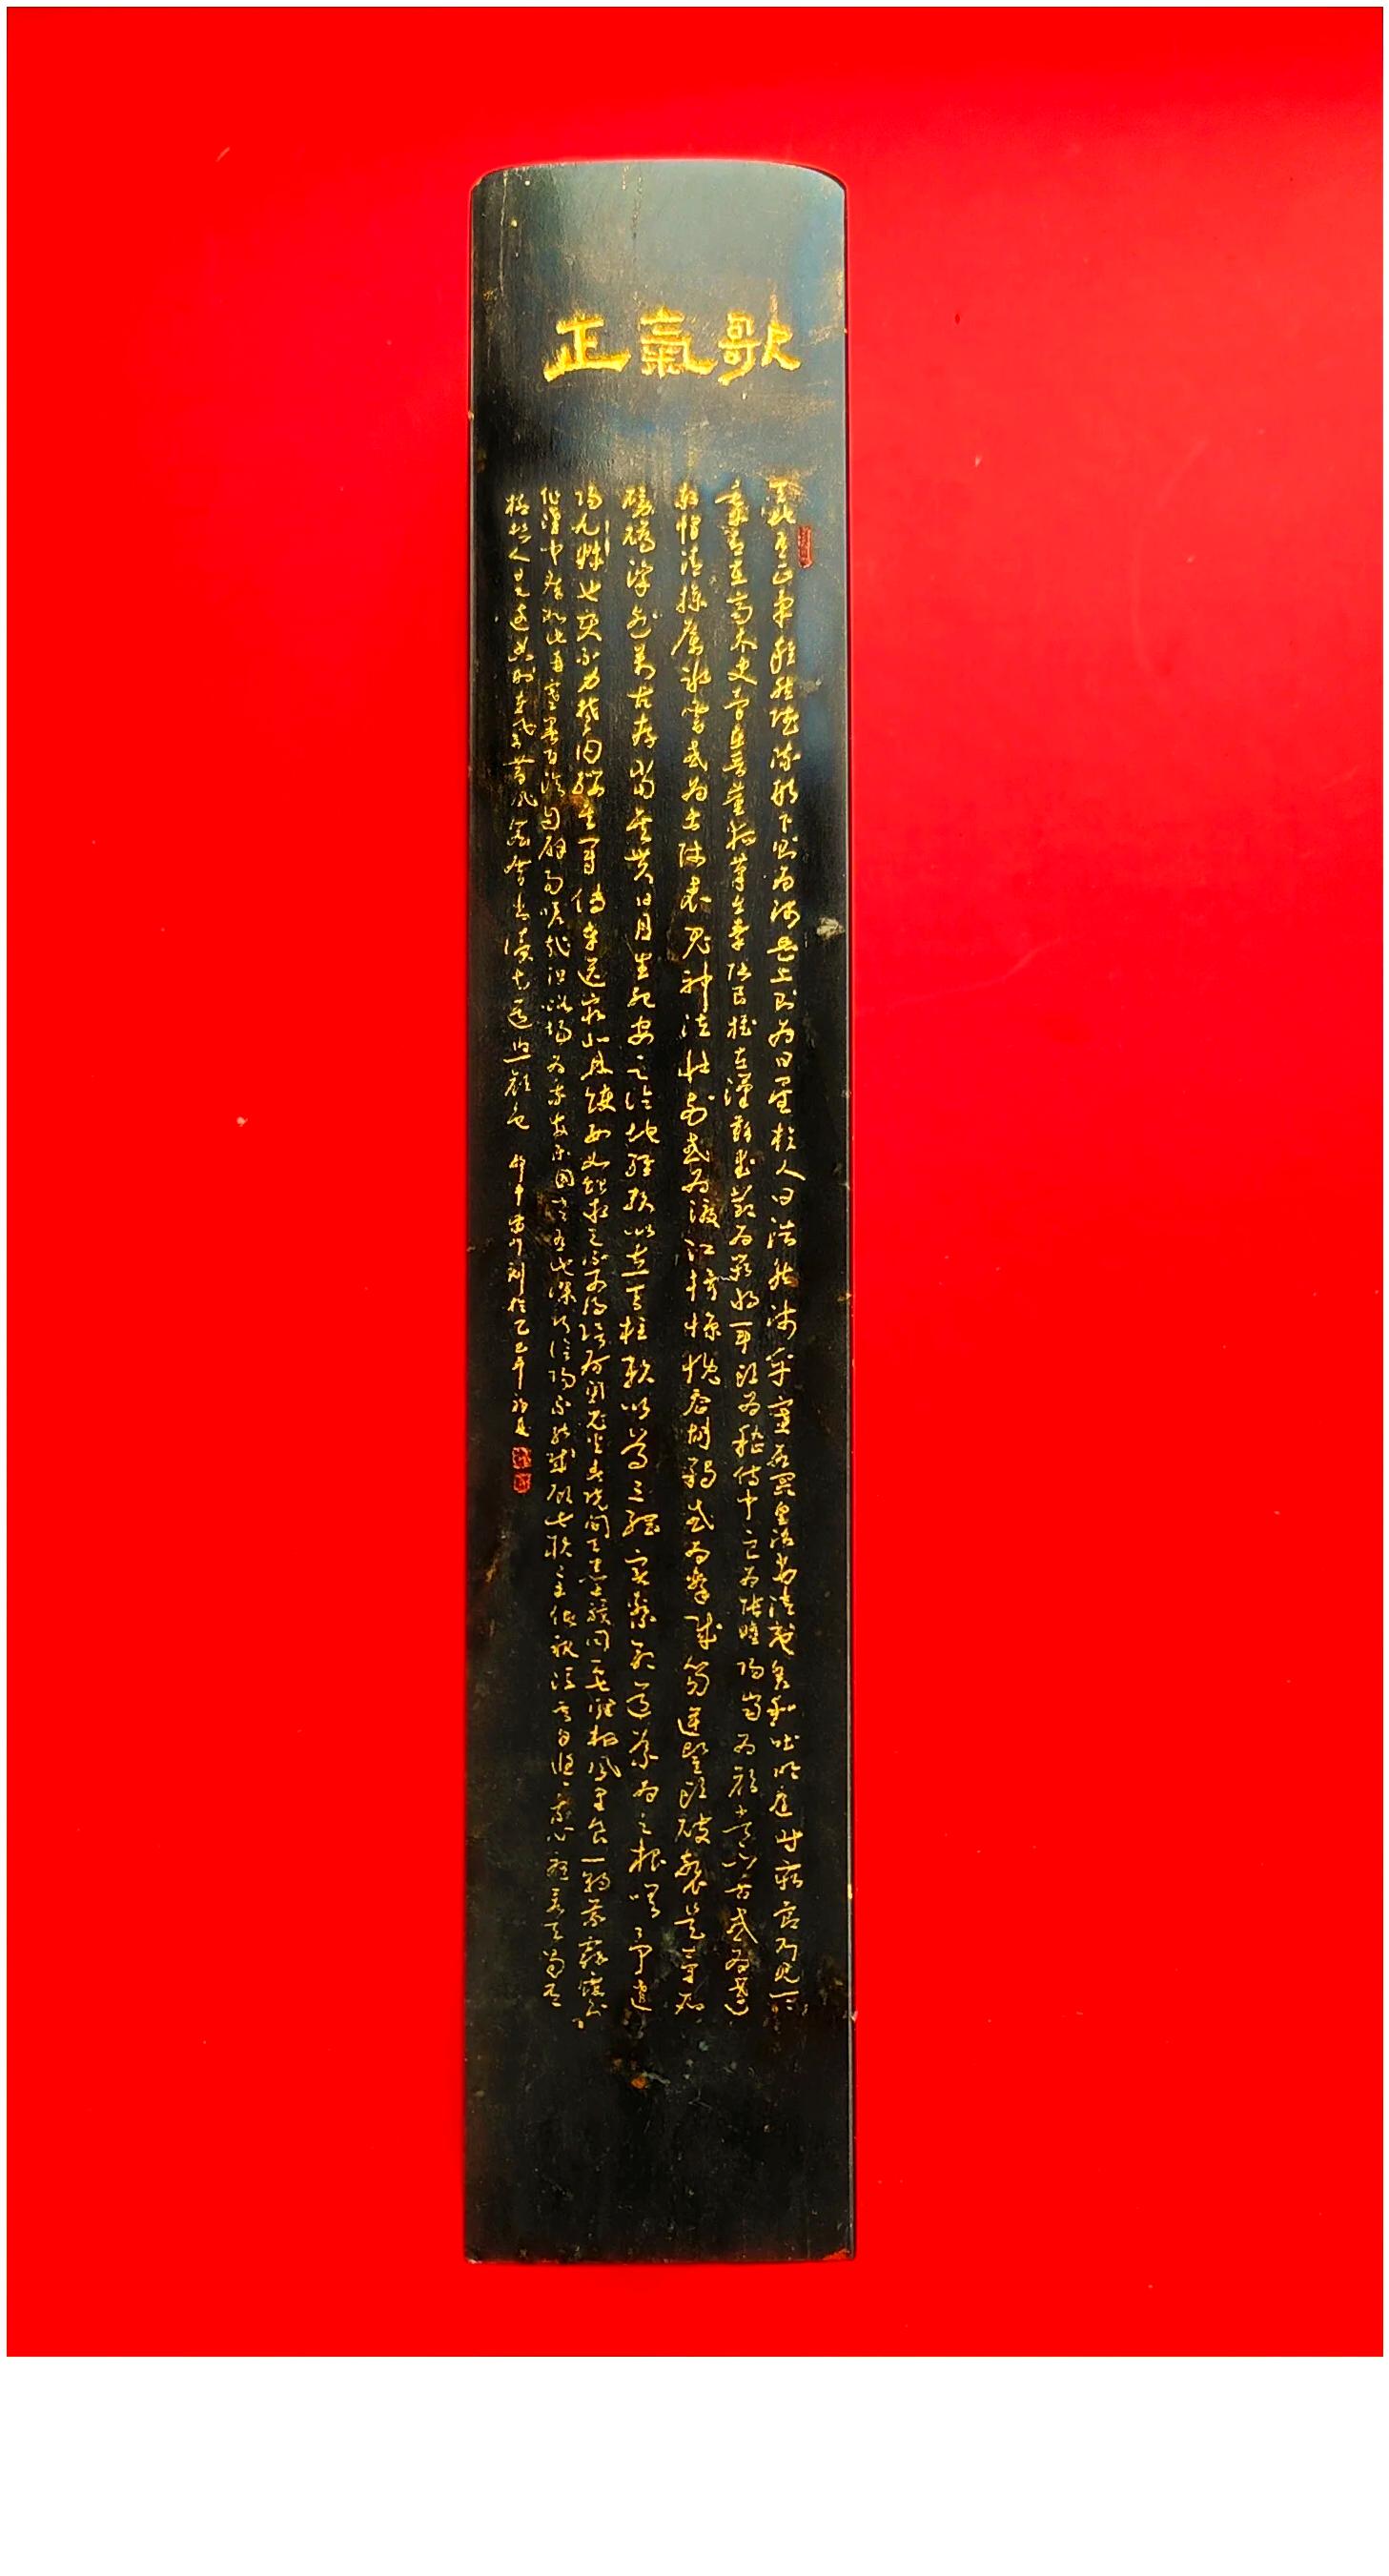 正氣歌
天地有正氣雜然賦流形下則為河嶽上則為日星於人曰浩然沛乎塞蒼冥皇路當清夷含和吐明庭時窮節乃見一一
垂丹青在齊太史簡在晉董狐筆在秦張良椎在漢蘇武節為嚴將軍頭為嵇侍中血為張睢陽齒為顏常山舌或為遼
東帽清操厲冰雪或為出師表鬼神泣壯烈或為渡江楫慷慨吞胡羯或為擊賊笏逆豎頭破裂是氣所
磅礴凜烈萬古存當其貫日月生死安足論地維賴以立天柱賴以尊三綱實繫命道義為之根嗟予遘
陽九隸也實不力楚囚纓其冠傳車送窮北鼎鑊甘如飴求之不可得陰房闃鬼火春院閟天黑牛驥同一皂雞棲鳳凰食一朝蒙霧露分
作溝中瘠如此再寒暑百沴自辟易嗟哉沮洳場為我安樂國豈有他繆巧陰陽不能賊顧此耿耿在仰視浮雲白悠悠我心悲蒼天曷有
極哲人日已遠典刑在夙昔風簷展書讀古道照顏色 刻於乙巳年初夏